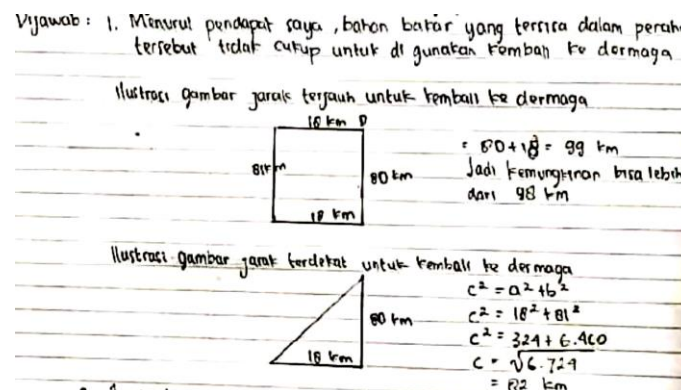 Dijawab : 1. Menurut pendapat saya, bahan bakar yang tersisa dalam perah
tersebut tidak cukup untuk di gunakan kembali ke dermaga
Ilustrasi gambar jarak terjauh untuk kembali ke dermaga
18 km D
81 km
80 km
18 km
= 80 + 18 = 99 km
Jadi kemungkinan bisa lebih
dari 98 km
Ilustrasi gambar jarak terdekat untuk kembali ke dermaga
80 km
18 km
c² = a² + b²
c² = 18² + 81²
c² = 324 + 6.400
c = √6.724
= 82 km